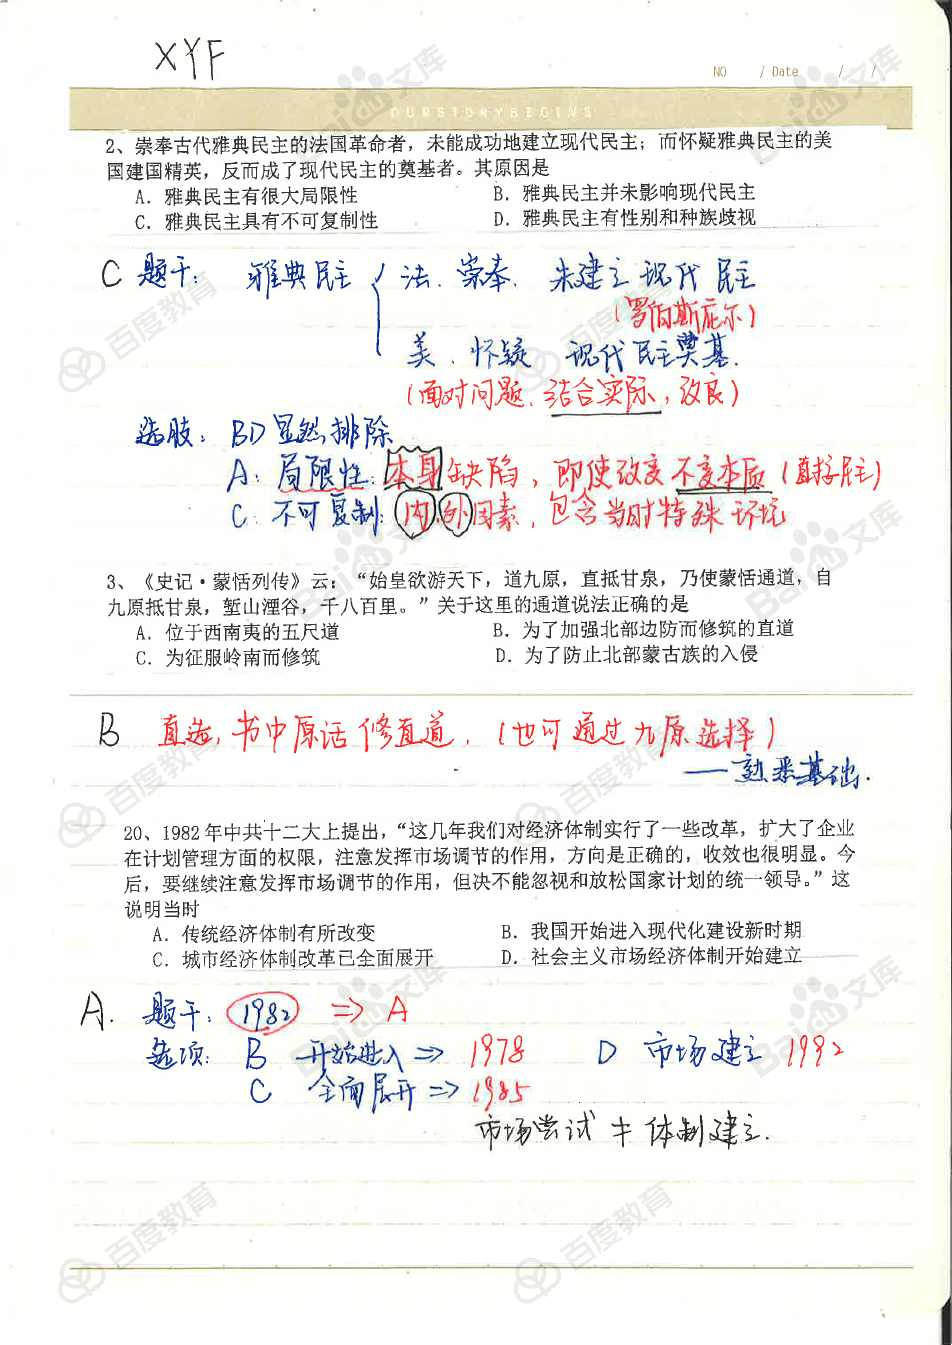 XYF
NO / Date / /
OURSTORYBEGINS
2、崇奉古代雅典民主的法国革命者，未能成功地建立现代民主；而怀疑雅典民主的美
国建国精英，反而成了现代民主的奠基者。其原因是
A. 雅典民主有很大局限性 B. 雅典民主并未影响现代民主
C. 雅典民主具有不可复制性 D. 雅典民主有性别和种族歧视
C 题干： 雅典民主 法. 崇奉. 未建立现代民主
（罗伯斯庇尔）
美. 怀疑 现代民主奠基.
（面对问题、结合实际，改良）
选肢： BD显然排除
A：局限性：本身缺陷，即使改变不变本质（直接民主）
C. 不可复制：内.外因素，包含当时特殊环境
3、《史记·蒙恬列传》云：“始皇欲游天下，道九原，直抵甘泉，乃使蒙恬通道，自
九原抵甘泉，堑山湮谷，千八百里。”关于这里的通道说法正确的是
A. 位于西南夷的五尺道 B. 为了加强北部边防而修筑的直道
C. 为征服岭南而修筑 D. 为了防止北部蒙古族的入侵
B 直选，书中原话修直道.（也可通过九原选择）
——熟悉基础.
20、1982年中共十二大上提出，“这几年我们对经济体制实行了一些改革，扩大了企业
在计划管理方面的权限，注意发挥市场调节的作用，方向是正确的，收效也很明显。今
后，要继续注意发挥市场调节的作用，但决不能忽视和放松国家计划的统一领导。”这
说明当时
A. 传统经济体制有所改变 B. 我国开始进入现代化建设新时期
C. 城市经济体制改革已全面展开 D. 社会主义市场经济体制开始建立
A. 题干：1982 => A
选项： B 开始进入 => 1978 D 市场建立 1992
C 全面展开 => 1985
市场尝试 ≠ 体制建立.